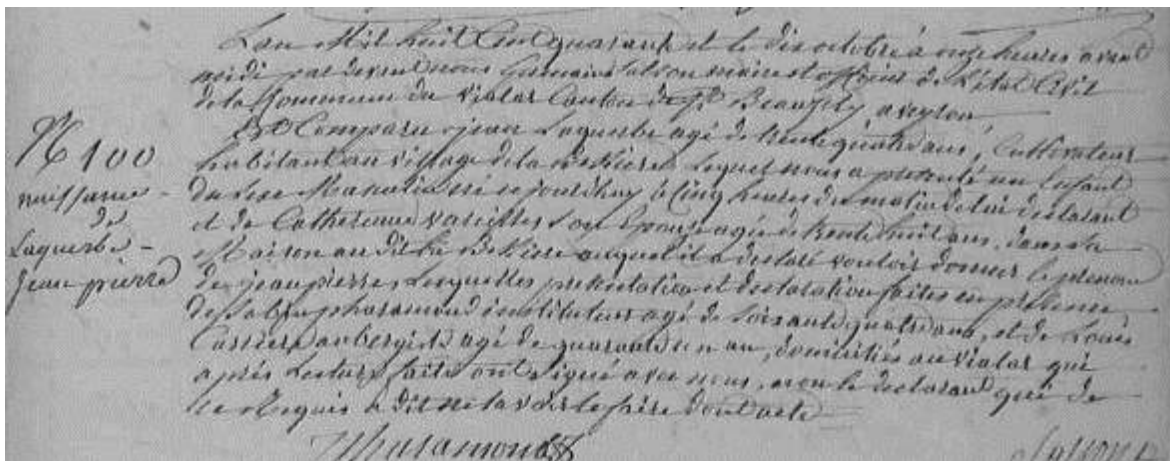 L'an Mil huit Cent quarante et le dix octobre à onze heures avant
midi par devant nous Germain maire et officier de l'état Civil
de la Commune du viala Canton de St Beauzely, aveyron
Est Comparu jean Laquerbe agé de trente quatre ans, Cultivateur
habitant au village de la Lequel nous a presenté un Enfant
du Sexe Masculin né ce jourdhuy à Cinq heures du matin de lui declarant
et de Catherine vareilles Son Epouse agée de trente huit ans, dans sa
Maison au dit auquel il a declaré vouloir donner le prenom
de jean pierre, Lesquelles presentation et declaration faites en presence
de pharamond instituteur agé de Soixante quatre ans, et de Louis
Carriere aubergiste agé de quarante un an, domiciliés au viala qui
après Lecture faite ont Signé avec nous, non le declarant qui de
ce Requis a dit ne savoir le faire dont acte
N 100
naissance
de
Laquerbe
jean pierre
Pharamond